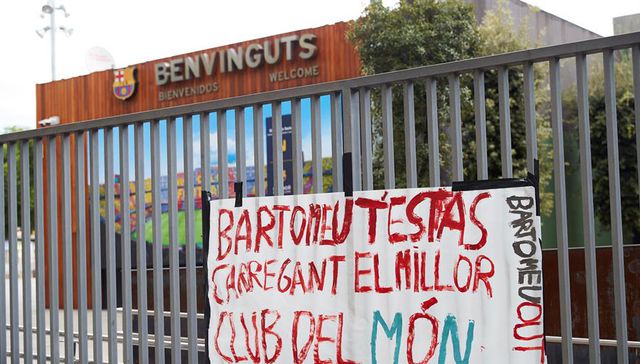 BENVINGUTS
BIENVENIDOS WELCOME
BARTOMEU T'ESTAS
CARREGANT EL MILLOR
CLUB DEL MÓN
BARTOMEU OUT